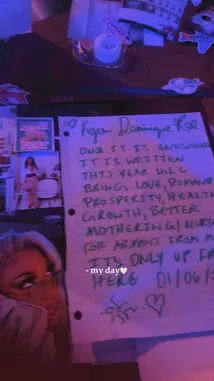 ONCE IT IS ENVISIONED
IT IS WRITTEN
THIS YEAR WILL
BRING LOVE, ROMANCE
PROSPERITY, HEALTH
GROWTH, BETTER
MOTHERING/
FOR ARMANI FROM M
ITS ONLY UP FR
- my day🤍
HERE 01/06/2